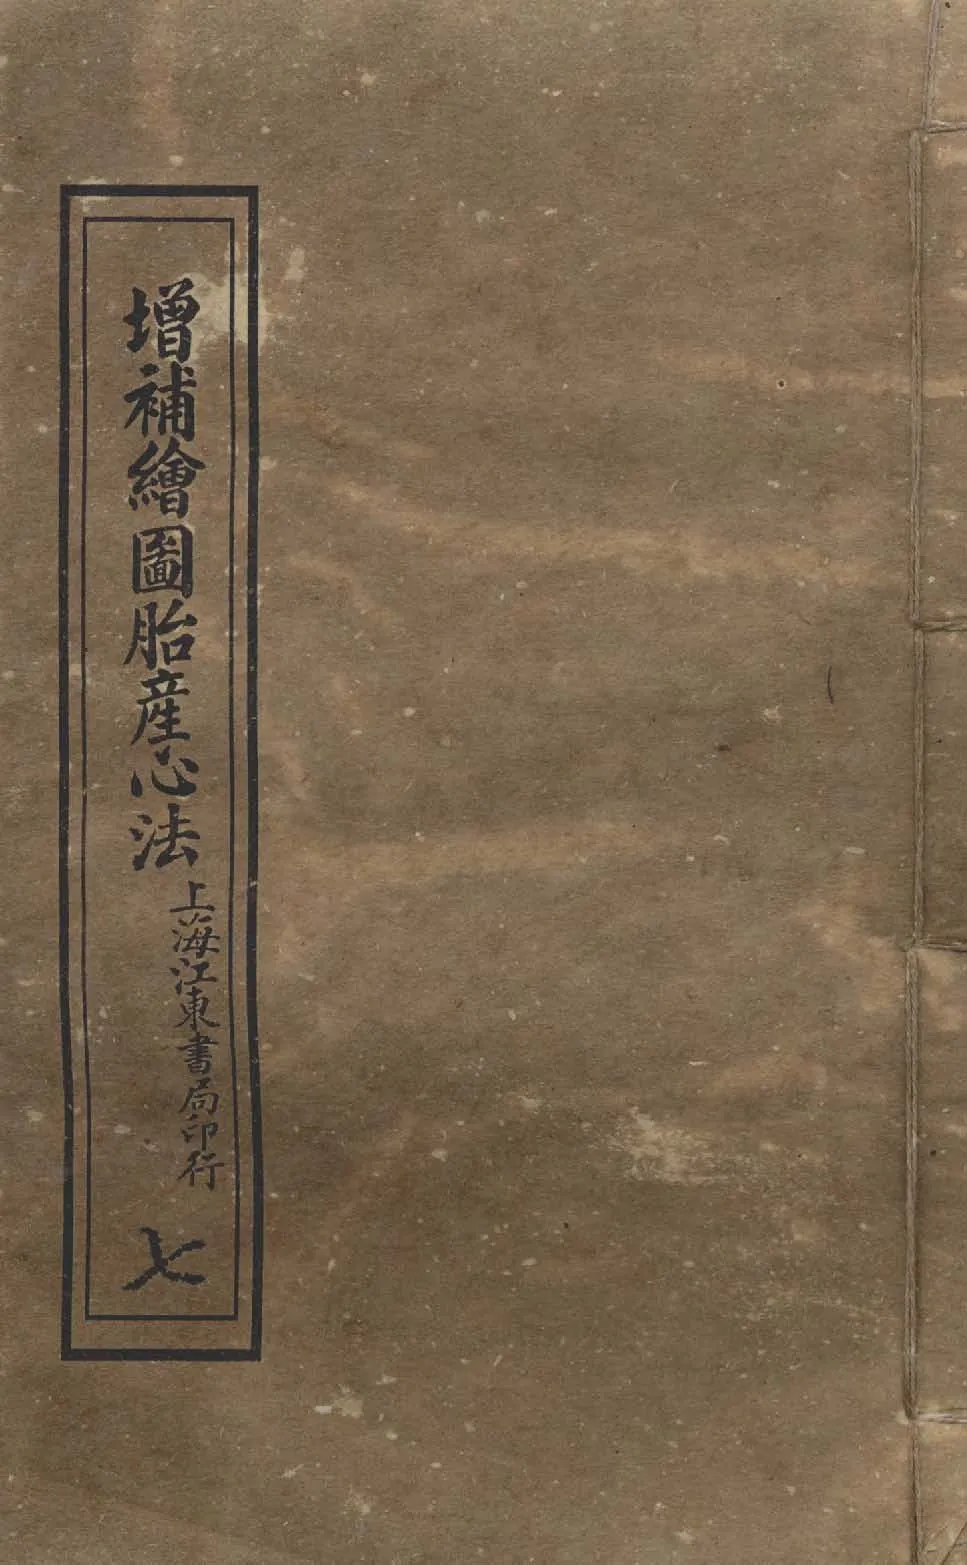 增補繪圖胎産心法
上海江東書局印行
七